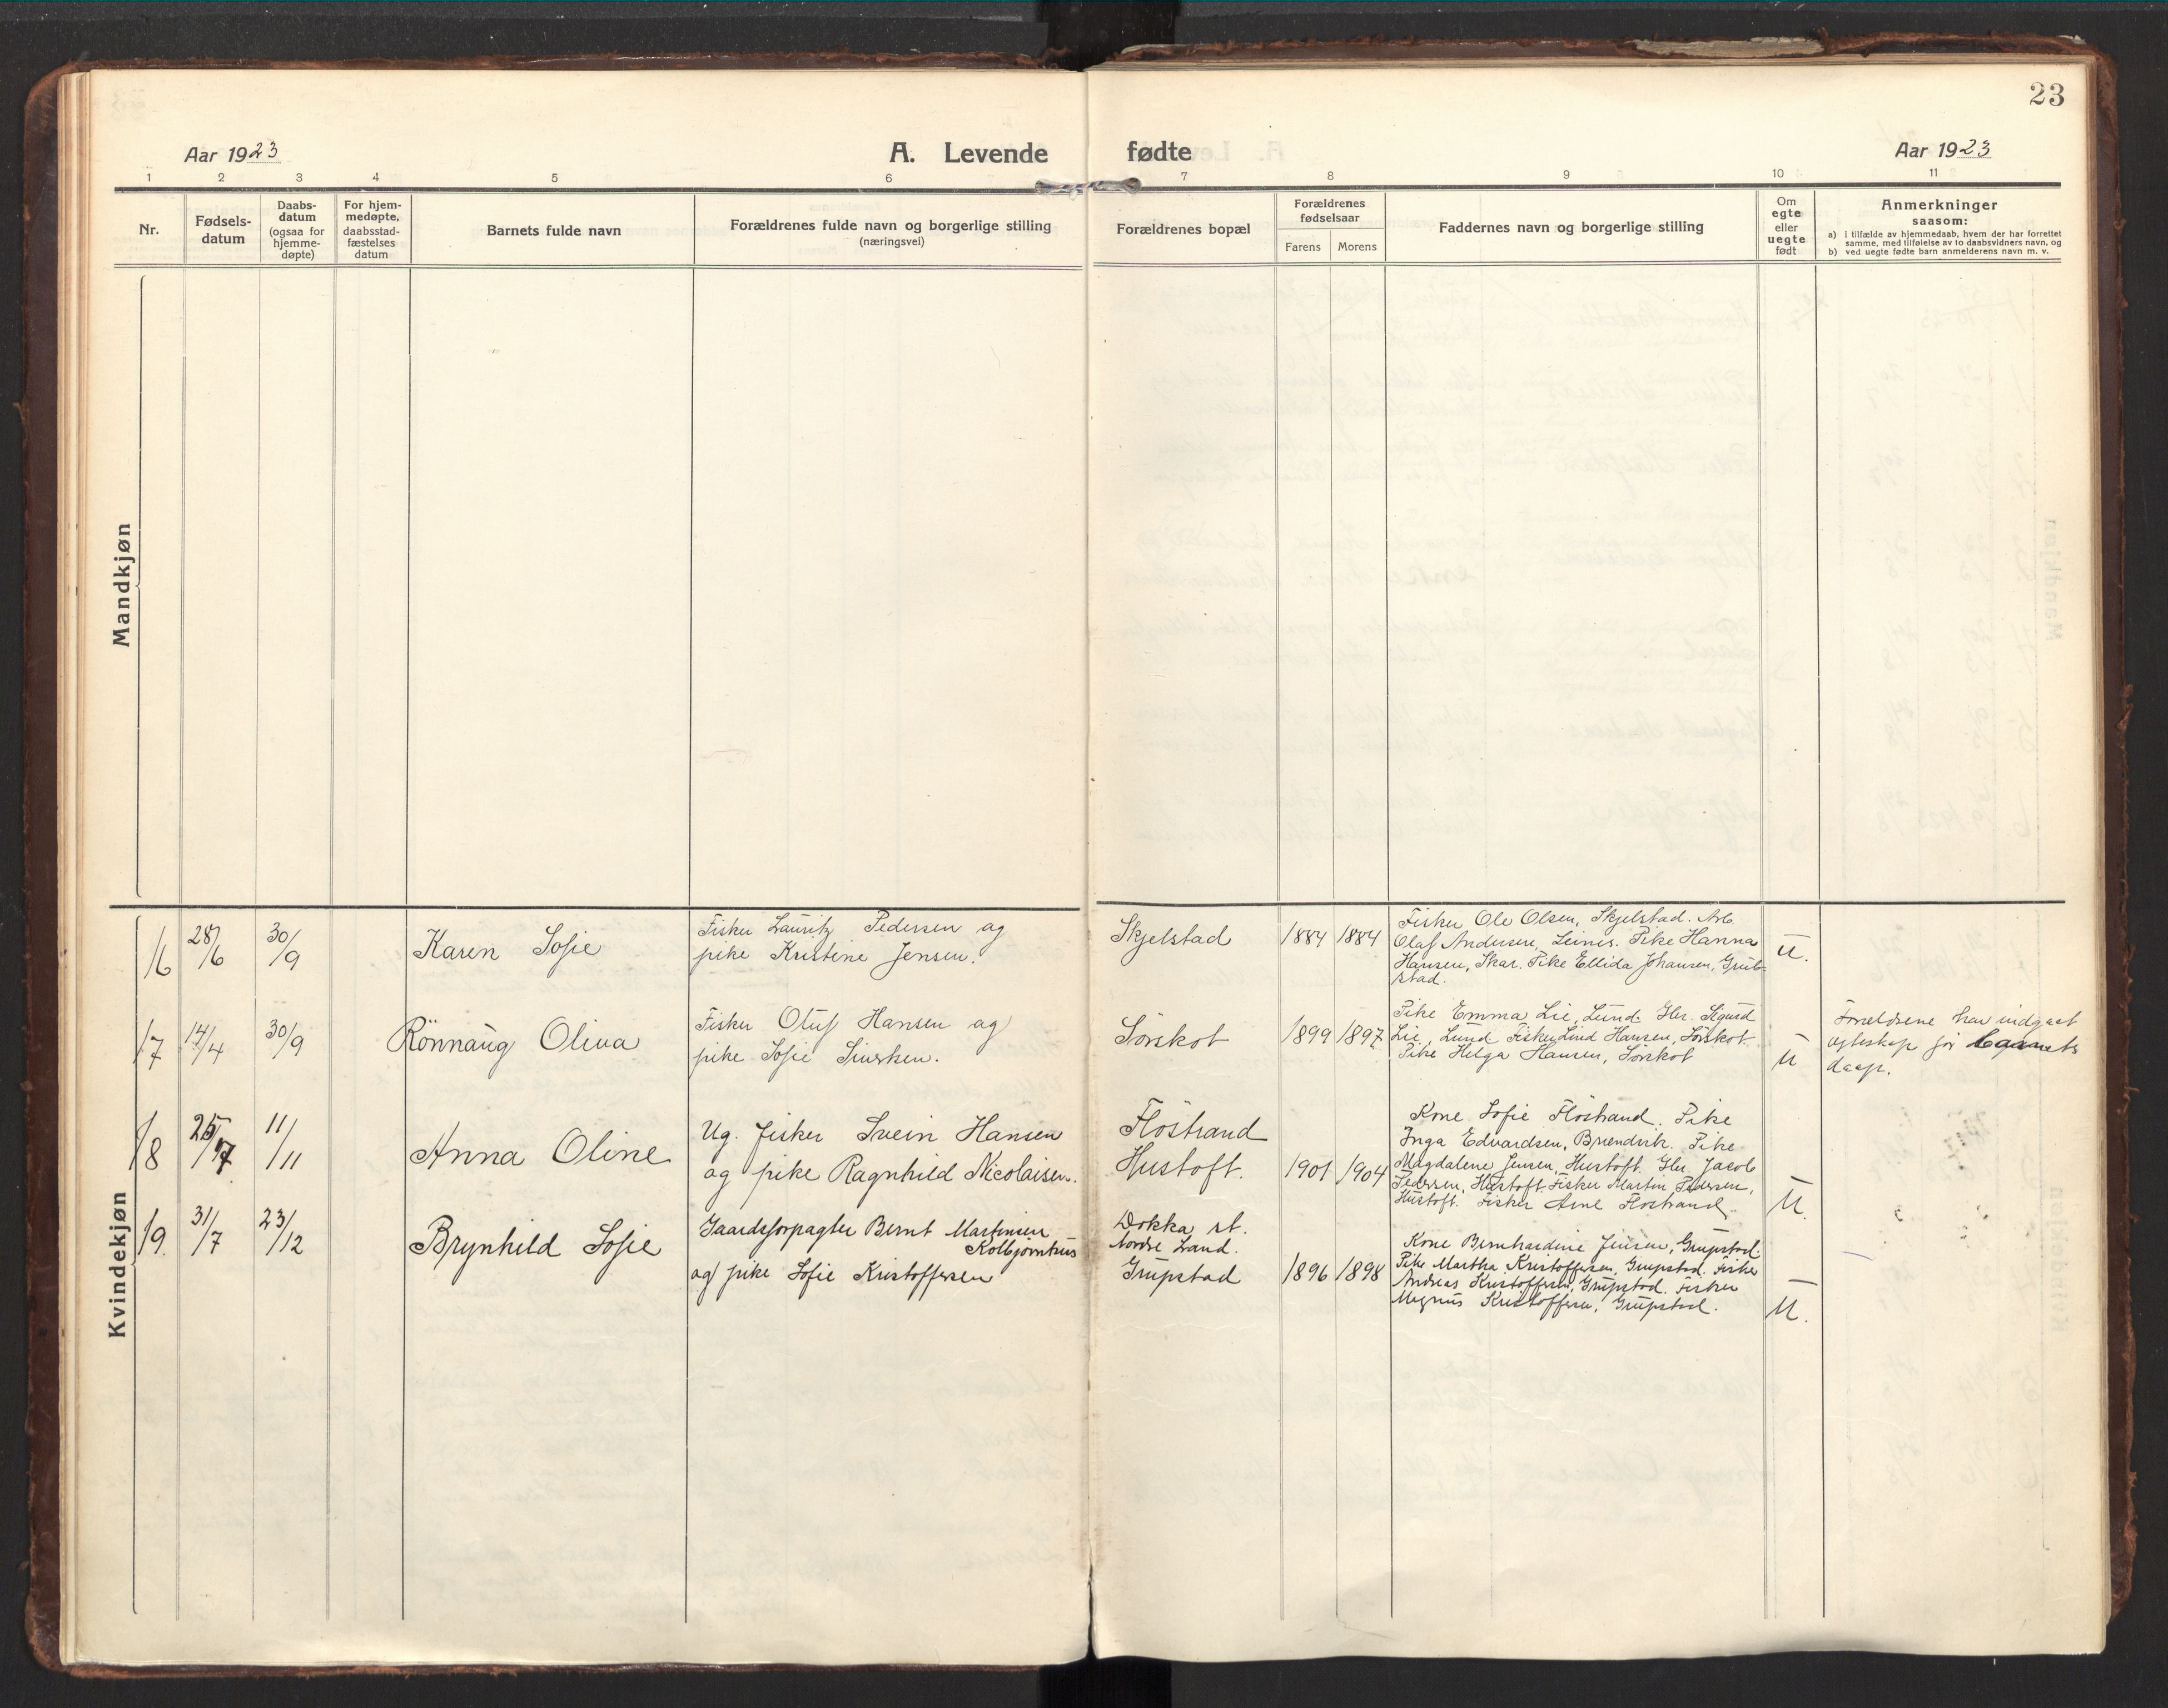 23
Aar 1923
A. Levende fødte
Aar 1923
1 2 3 4 5 6 7 8 9 10 11
Nr.
Fødsels-
datum
Daabs-
datum
(ogsaa for
hjemme-
døpte)
For hjem-
medøpte,
daabsstad-
fæstelses
datum
Barnets fulde navn
Forældrenes fulde navn og borgerlige stilling
(næringsvei)
Forældrenes bopæl
Forældrenes
fødselsaar
Farens
Morens
Faddernes navn og borgerlige stilling
Om
egte
eller
uegte
født
Anmerkninger
saasom:
a) i tilfælde av hjemmedaab, hvem der har forrettet
samme, med tilføielse av to daabsvidners navn, og
b) ved uegte fødte barn anmelderens navn m. v.
Mandkjøn
Kvindekjøn
16
28/6
30/9
Karen Sofie
Fisker Lauritz Pedersen og
pike Kristine Jensen.
Skjelstad
1884
1884
Fisker Ole Olsen, Skjelstad. Arb.
Olaf Andersen, Leines. Pike Hanna
Hansen, Skar. Pike Ellida Johansen, Grub-
stad.
U.
17
14/4
30/9
Rönnaug Oliva
Fisker Oluf Hansen og
pike Sofie
Sörskot
1899
1897
Pike Emma Lie, Lund. Gbr. Sigurd
Lie, Lund Fisker Lind Hansen, Sörskot.
Pike Helga Hansen, Sörskot
U
Forældrene har indgaat
egteskap för barnets
daap.
18
25/7
11/11
Anna Oline
Ug. fisker Svein Hansen
og pike Ragnhild Nicolaisen.
Flöstrand
Hustoft.
1901
1904
Kone Sofie Flöstrand. Pike
Inga Edvardsen, Brændvik. Pike
Magdalene Jensen, Hustoft. Gbr. Jacob
Pedersen, Hustoft. Fisker Martin Pedersen,
Hustoft. Fisker Arne Flostrand.
U.
19.
31/7
23/12
Brynhild Sofie
Gaardsforpagter Bernt Martinsen
Kolbjørnhus
og pike Sofie Kristoffersen
Dokka st.
Nordre Land.
Grupstad
1896
1898
Kone Bernhardine Jensen, Grupstad.
Pike Martha Kristoffersen, Grupstad. Fisker
Andreas Kristoffersen, Grupstad. Fisker
Magnus Kristoffersen, Grupstad.
U.